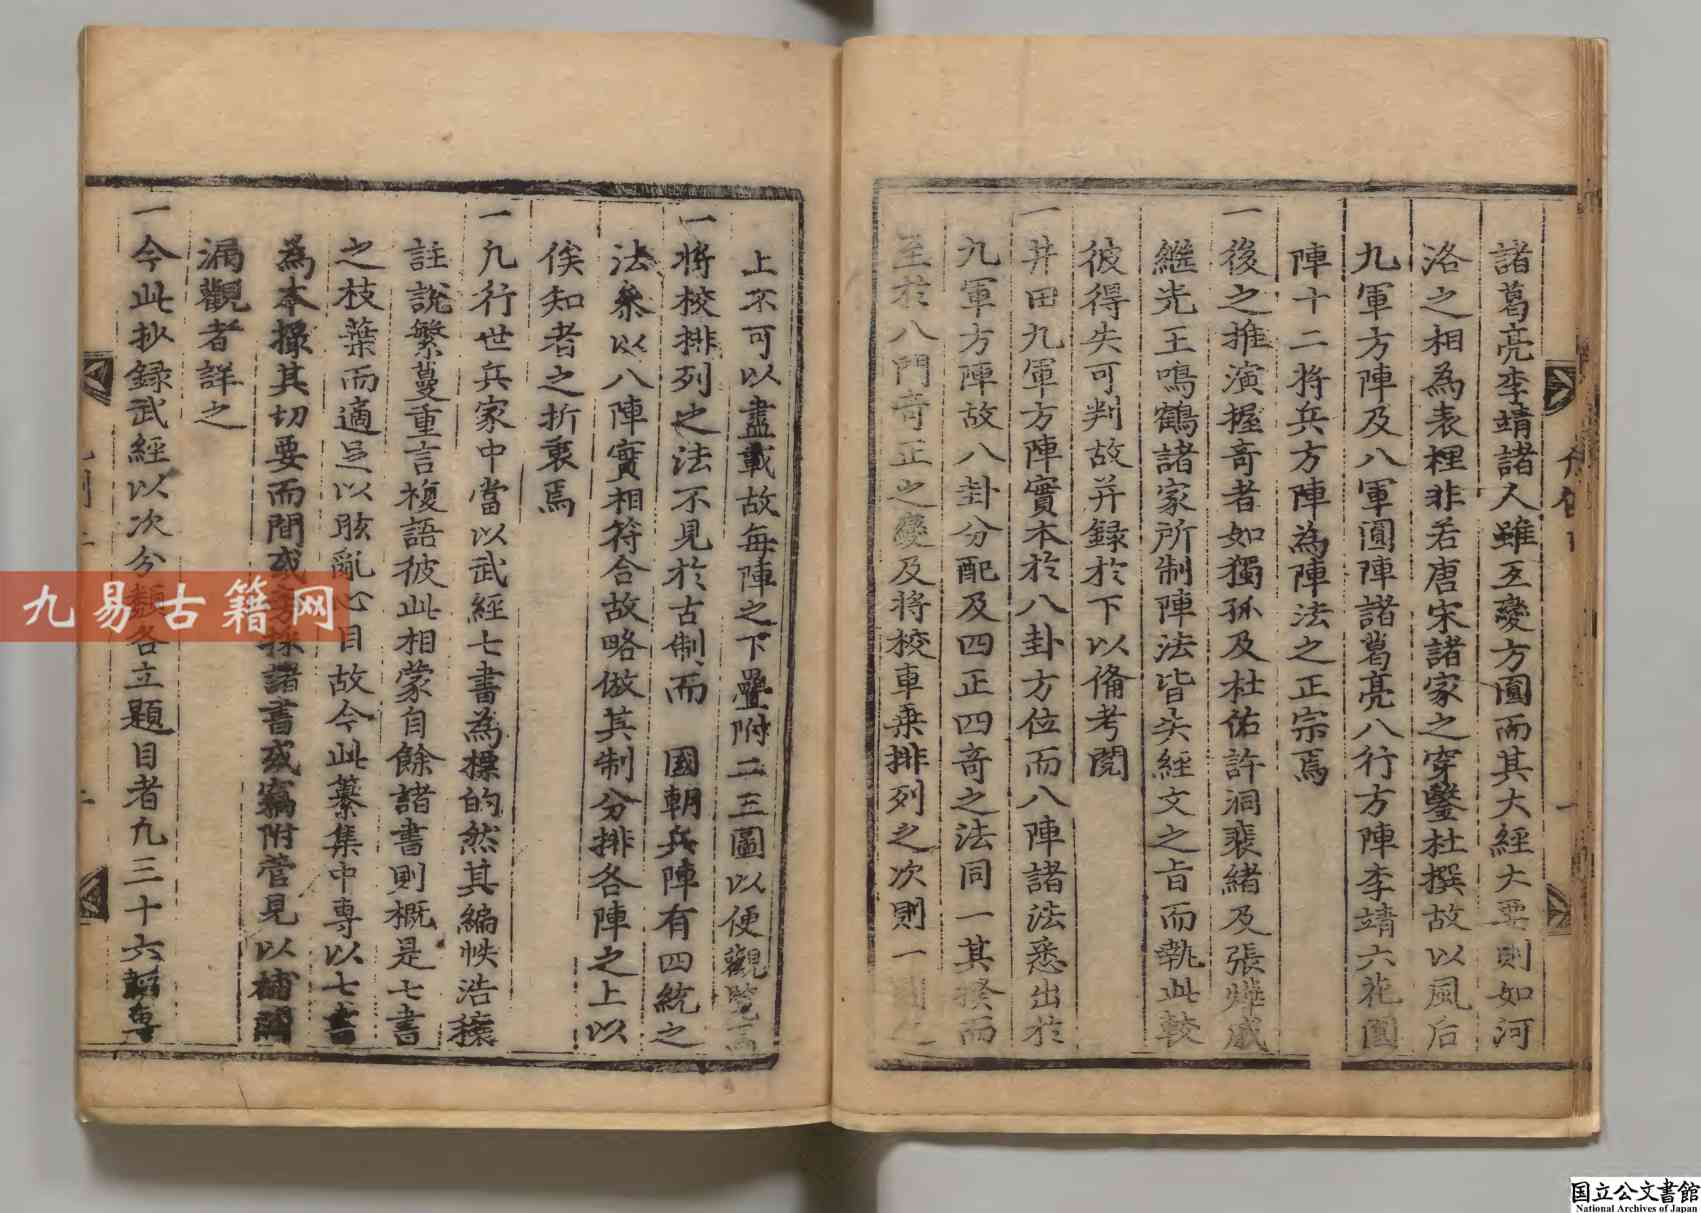 諸葛亮李靖諸人雖互變方圎而其大經大要則如河
洛之相為表裡非若唐宋諸家之穿鑿杜撰故以風后
九軍方陣及八軍圎陣諸葛亮八行方陣李靖六花圎
陣十二將兵方陣為陣法之正宗焉
一後之推演握奇者如獨孤及杜佑許洞裴緒及張燁戚
繼光王鳴鶴諸家所制陣法皆失經文之旨而執此較
彼得失可判故并録於下以俻考閱
一井田九軍方陣實本於八卦方位而八陣諸法悉出於
九軍方陣故八卦分配及四正四奇之法同一其揆而
至於八門奇正之變及将校車乗排列之次則一
上不可以盡載故每陣之下疊附二三圖以便觀覽焉
一將校排列之法不見於古制而 國朝兵陣有四統之
法叅以八陣實相符合故略倣其制分排各陣之上以
俟知者之折衷焉
一凡行世兵家中當以武經七書為標的然其編帙浩穰
註說繁蔓重言複語彼此相蒙自餘諸書則概是七書
之枝葉而適足以眩亂心目故今此纂集中専以七書
為本撮其切要而間或採諸書或竊附管見以補闕
漏觀者詳之
一今此抄録武經以次分類各立題目者凡三十六
九易古籍网
国立公文書館
National Archives of Japan